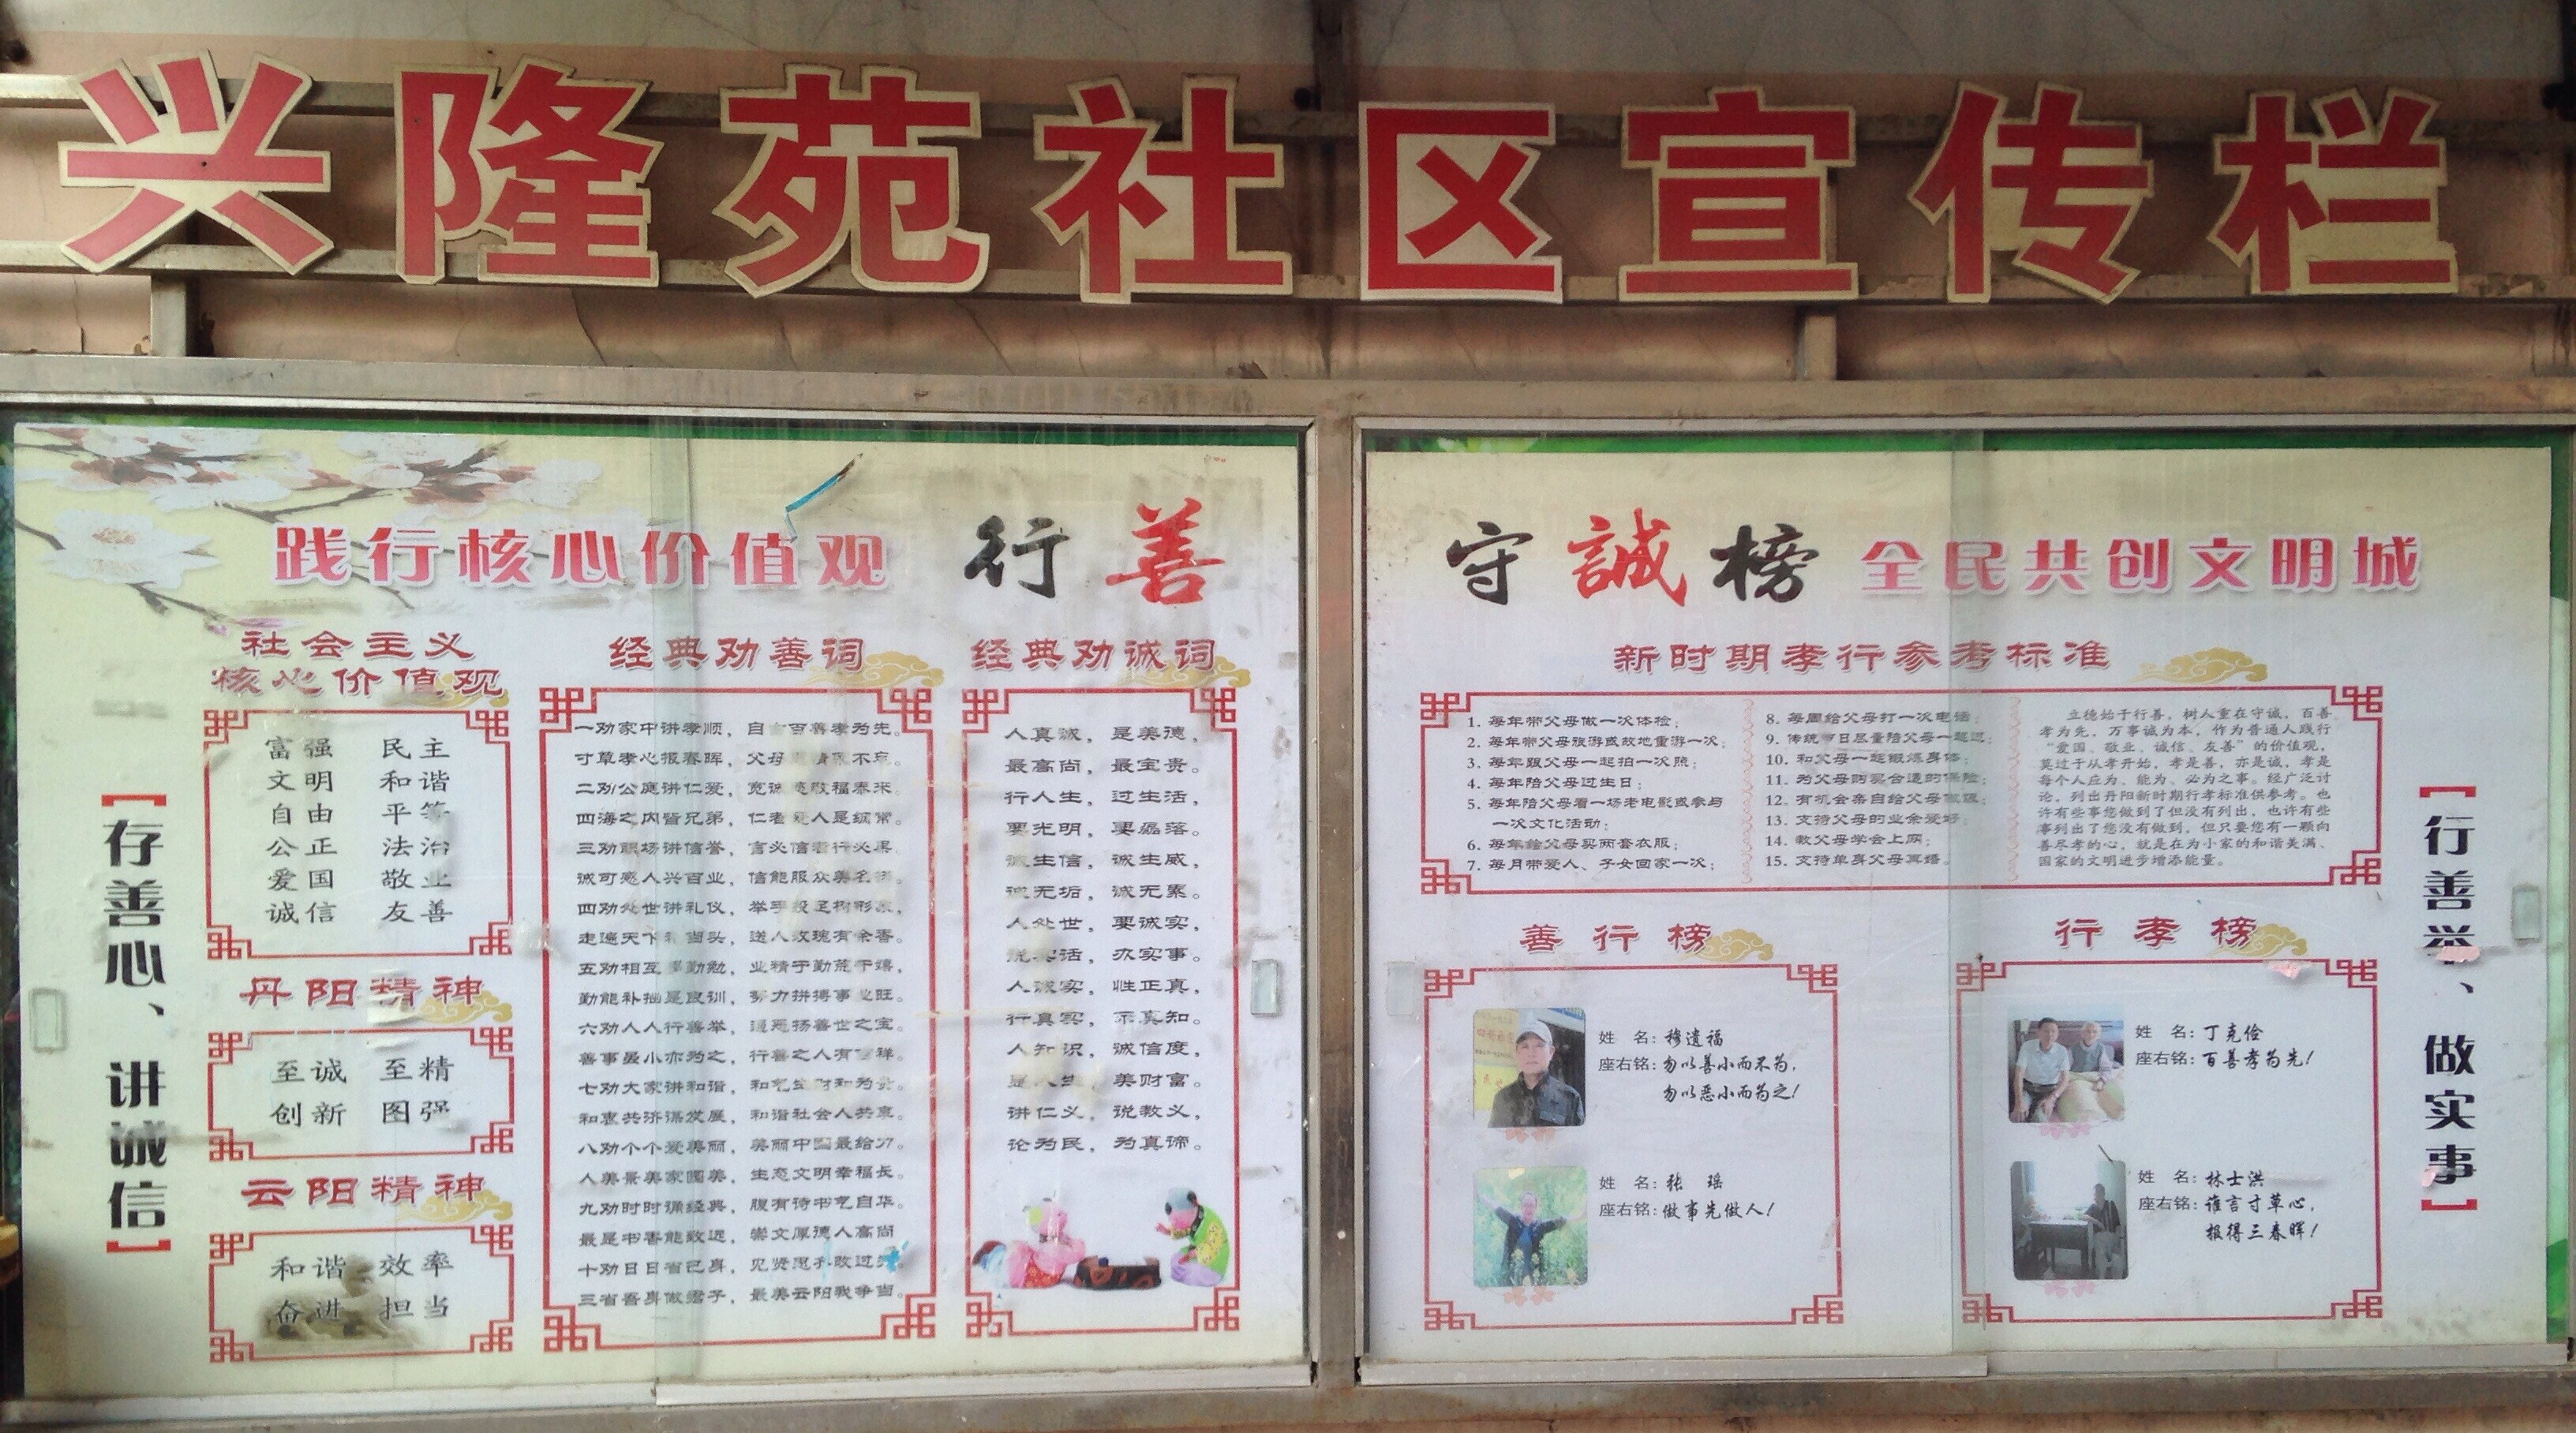 兴隆苑社区宣传栏
践行核心价值观 行善
守誠榜 全民共创文明城
【存善心、讲诚信】
社会主义
核心价值观
富强 民主
文明 和谐
自由 平等
公正 法治
爱国 敬业
诚信 友善
丹阳精神
至诚 至精
创新 图强
云阳精神
和谐 效率
奋进 担当
经典劝善词
一劝家中讲孝顺，自 百善孝为先。
寸草孝心报春晖，父母 不忘。
二劝公庭讲仁爱，宽 福泰来。
四海之内皆兄弟，仁者 人是纲常。
三劝职场讲信誉，言必信者行必果。
诚可感人兴百业，信能服众美名
四劝处世讲礼仪，举手投足树形象，
走遍天下 当头，送人玫瑰有余香。
五劝相互 勤勉，业精于勤荒于嬉，
勤能补拙是良训，努力拼搏事业旺。
六劝人人行善举， 扬善世之宝。
善事虽小亦为之，行善之人有 祥。
七劝大家讲和谐，和气生财和为贵。
和衷共济谋发展，和谐社会人共享。
八劝个个爱美丽，美丽中国最给力。
人美景美家园美，生态文明幸福长。
九劝时时诵经典，腹有诗书气自华。
最是书香能致远，崇文厚德人高尚
十劝日日省己身，见贤思齐改过
三省吾身做君子，最美云阳我争当。
经典劝诚词
人真诚，是美德，
最高尚，最宝贵。
行人生，过生活，
要光明，要磊落。
诚生信，诚生威，
诚无垢，诚无累。
人处世，要诚实，
说实话，办实事。
人诚实，性正真，
行真实，示真知。
人知识，诚信度，
是人生，美财富。
讲仁义，说教义，
论为民，为真谛。
新时期孝行参考标准
1. 每年带父母做一次体检；
2. 每年带父母旅游或故地重游一次；
3. 每年跟父母一起拍一次照；
4. 每年陪父母过生日；
5. 每年陪父母看一场老电影或参与
一次文化活动；
6. 每年给父母买两套衣服；
7. 每月带爱人、子女回家一次；
8. 每周给父母打一次电话；
9. 传统节日尽量陪父母一起过；
10. 和父母一起锻炼身体；
11. 为父母购买合适的保险；
12. 有机会亲自给父母做饭；
13. 支持父母的业余爱好；
14. 教父母学会上网；
15. 支持单身父母再婚。
立德始于行善，树人重在守诚，百善
孝为先，万事诚为本，作为普通人践行
“爱国、敬业、诚信、友善”的价值观，
莫过于从孝开始，孝是善，亦是诚，孝是
每个人应为、能为、必为之事。经广泛讨
论，列出丹阳新时期行孝标准供参考。也
许有些事您做到了但没有列出，也许有些
事列出了您没有做到，但只要您有一颗向
善尽孝的心，就是在为小家的和谐美满、
国家的文明进步增添能量。
善行榜
姓 名：穆遗福
座右铭：勿以善小而不为，
勿以恶小而为之！
姓 名：张 瑶
座右铭：做事先做人！
行孝榜
姓 名：丁克俭
座右铭：百善孝为先！
姓 名：林士洪
座右铭：谁言寸草心，
报得三春晖！
【行善举、做实事】